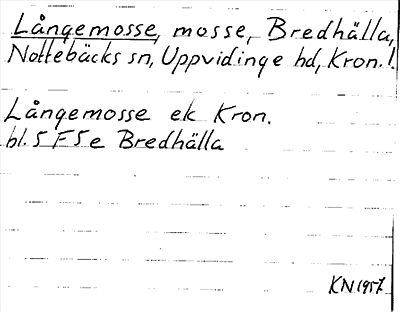 Långemosse, mosse, Bredhälla,
Nottebäcks sn, Uppvidinge hd, Kron. l.
Långemosse ek Kron.
bl. 5 F 5 e Bredhälla
KN 1957